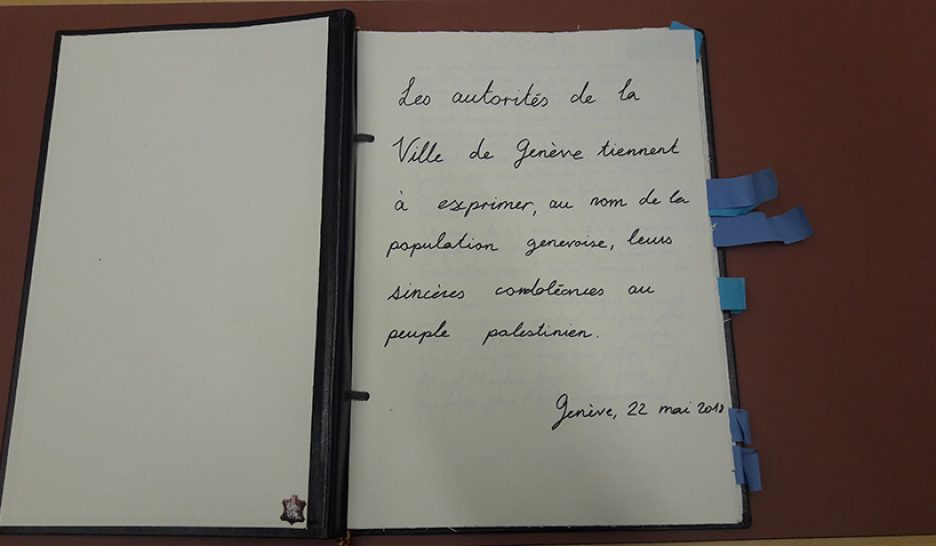 Les autorités de la
Ville de Genève tiennent
à exprimer, au nom de la
population genevoise, leurs
sincères condoléances au
peuple palestinien.
Genève, 22 mai 2018